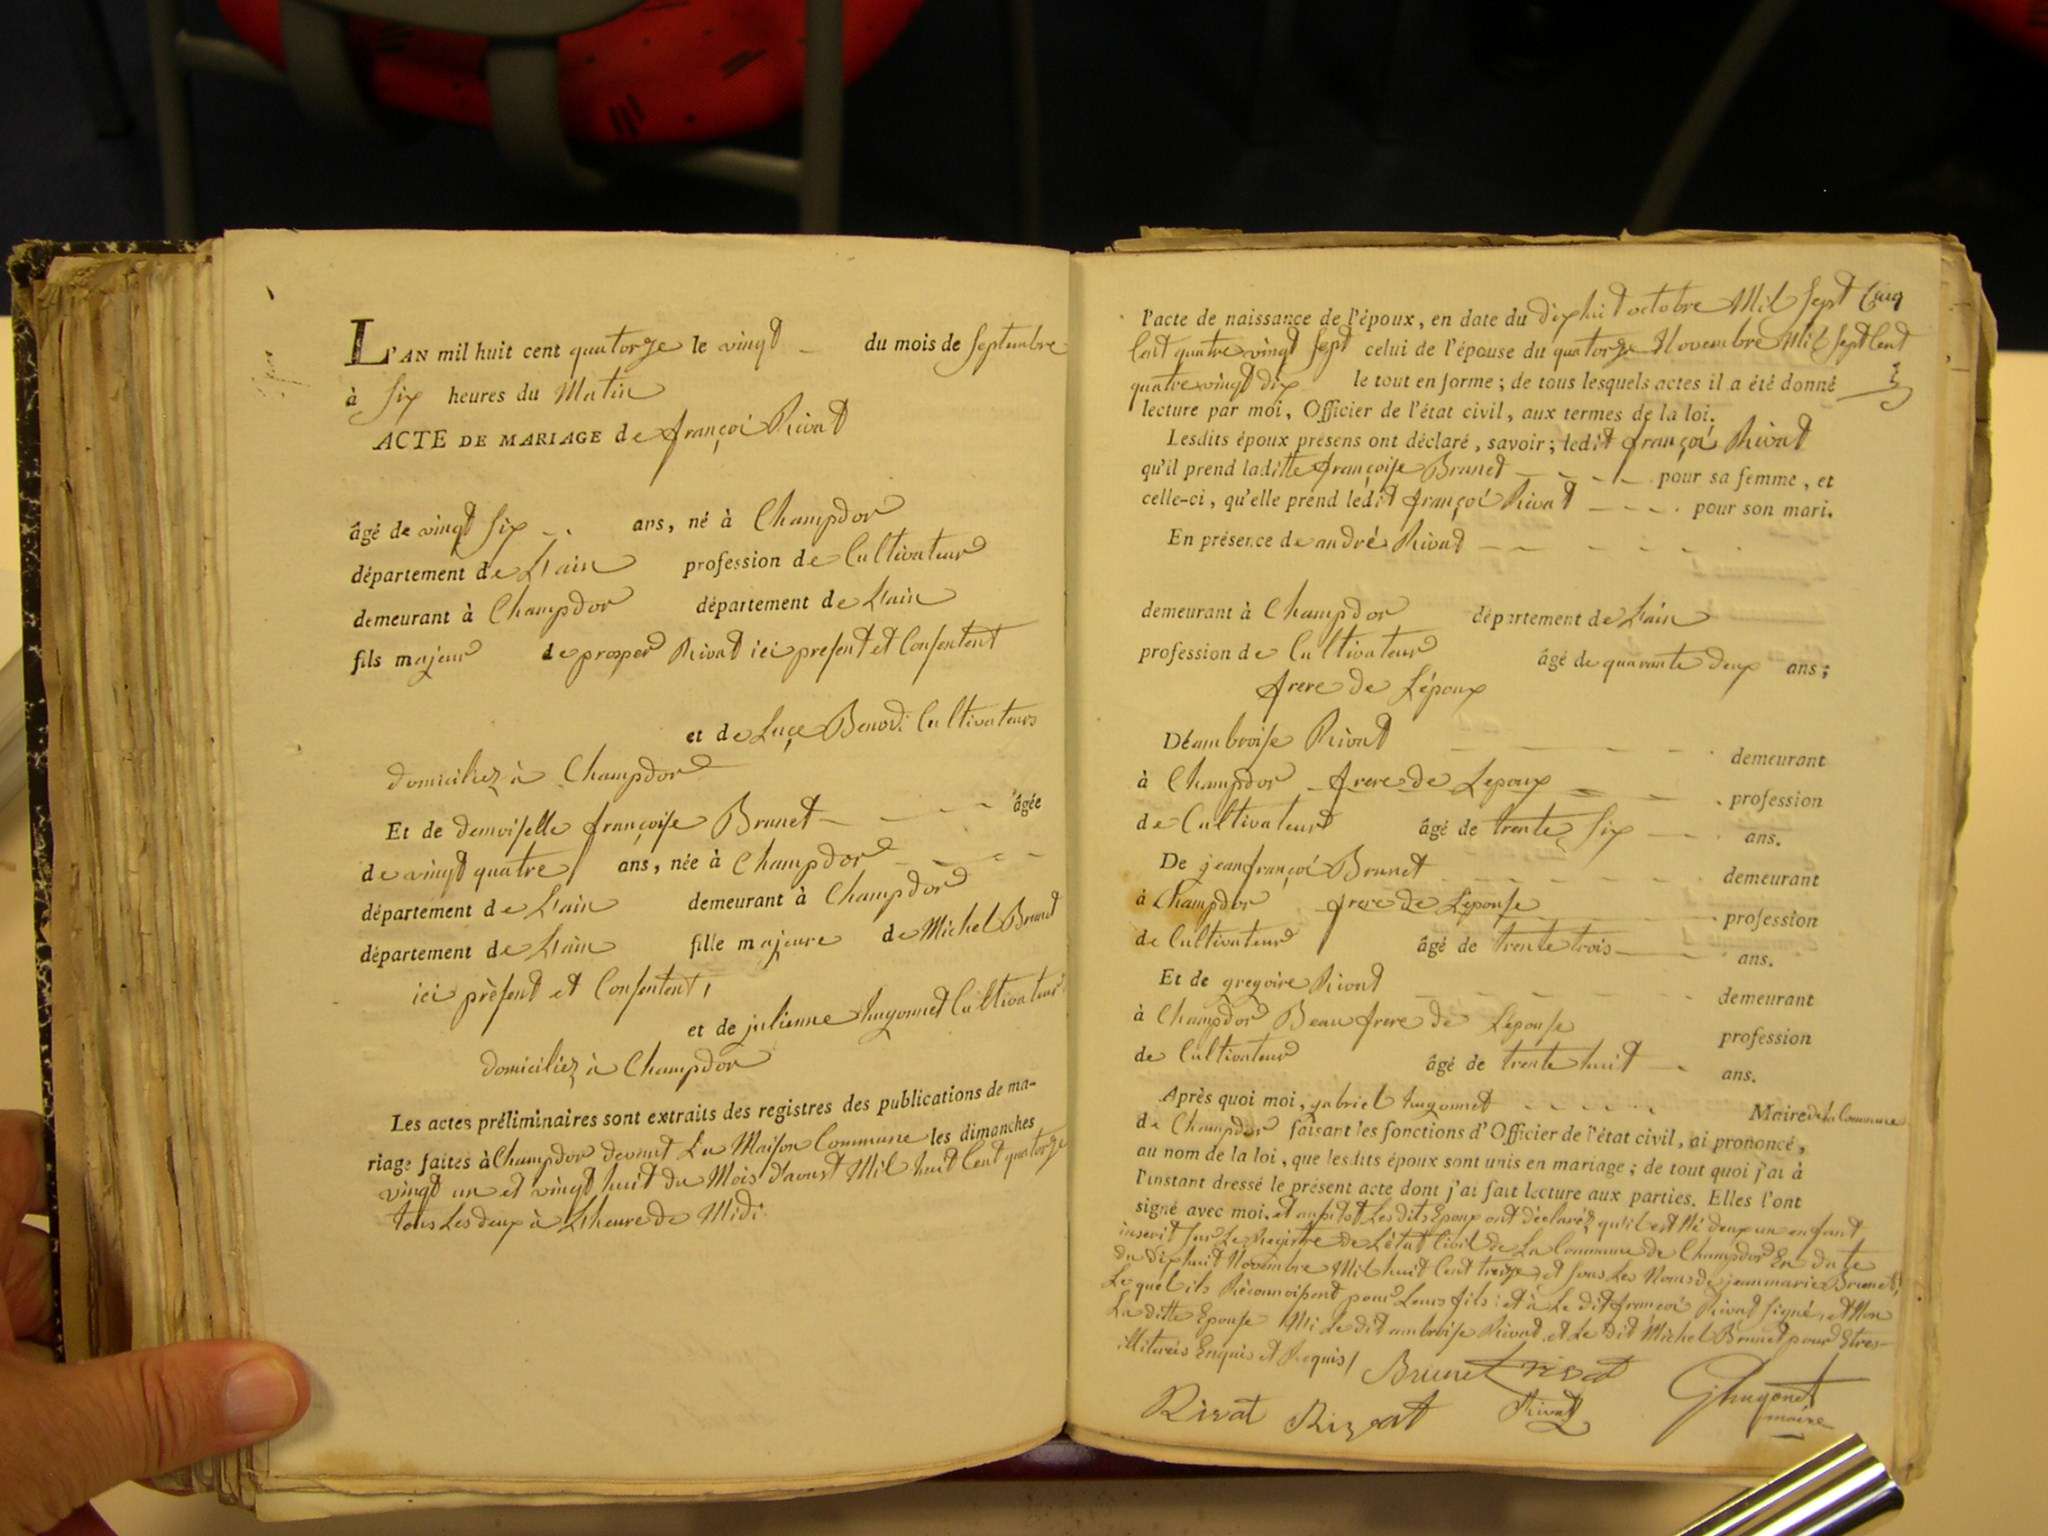 L'AN mil huit cent quatorze le vingt du mois de septembre
à six heures du Matin
ACTE DE MARIAGE de françoi Rivat
âgé de vingt six ans, né à Champdor
département de L'ain profession de Cultivateur
demeurant à Champdor département de L'ain
fils majeur de prosper Rivat ici present et Consentent
et de Luce Benod. Cultivateurs
domiciliez à Champdor
Et de demoiselle françoise Brunet âgée
de vingt quatre ans, née à Champdor
département de L'ain demeurant à Champdor
département de L'ain fille majeure de Michel Brunet
ici présent et Consentent,
et de julienne hugonnet Cultivateur
domiciliez à Champdor
Les actes préliminaires sont extraits des registres des publications de ma-
riage faites à Champdor devant La Maison Commune les dimanches
vingt un et vingt huit du Mois d'aoust Mil huit Cent quatorze
tous Les deux à L'heure de Midi
l'acte de naissance de l'époux, en date du dix huit octobre Mil sept
Cent quatre vingt sept celui de l'épouse du quatorze Novembre Mil sept Cent
quatre vingt dix le tout en forme; de tous lesquels actes il a été donné
lecture par moi, Officier de l'état civil, aux termes de la loi.
Lesdits époux présens ont déclaré, savoir; ledit françoi Rivat
qu'il prend laditte françoise Brunet pour sa femme, et
celle-ci, qu'elle prend ledit françoi Rivat pour son mari.
En présence de andré Rivat
demeurant à Champdor département de L'ain
profession de Cultivateur âgé de quarante deux ans;
frere de L'époux
De ambroise Rivat demeurant
à Champdor frere de Lepoux profession
de Cultivateur âgé de trente six ans.
De jean françoi Brunet demeurant
à Champdor frere de Lepouse profession
de Cultivateur âgé de trente trois ans.
Et de gregoire Rivat demeurant
à Champdor Beau frere de Lepouse profession
de Cultivateur âgé de trente huit ans.
Après quoi moi, gabriel hugonnet Maire de la Commune
de Champdor faisant les fonctions d'Officier de l'état civil, ai prononcé,
au nom de la loi, que lesdits époux sont unis en mariage; de tout quoi j'ai à
l'instant dressé le présent acte dont j'ai fait lecture aux parties. Elles l'ont
signé avec moi. et aussitot Les dits Epoux ont déclaréz qu'il est Né deux un enfant
inscrit sur Le Registre de L'état Civil de La Commune de Champdor En date
du dix huit Novembre Mil huit Cent treize, et sous Les Noms de jean marie Brunet,
Le quel ils Réconnoissent pour Leurs fils: et à Le dit françoi Rivat signé, et Non
La ditte Epouse Ni Le dit ambroise Rivat et Le dit Michel Brunet pour Etres
Enquis et Requis/ Brunet rivat
Rivat Rivat Rivat Ghugonet
maire